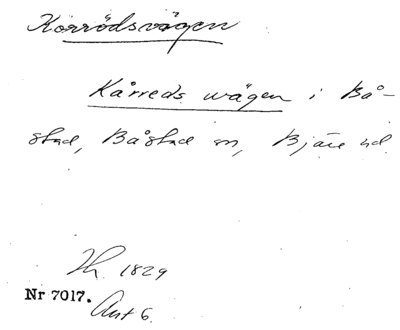 Korrödsvägen
Kårreds wägen i Bå-
stad, Båstad sn, Bjäre hd.
Th. 1829
Nr 7017.
Ant 6.